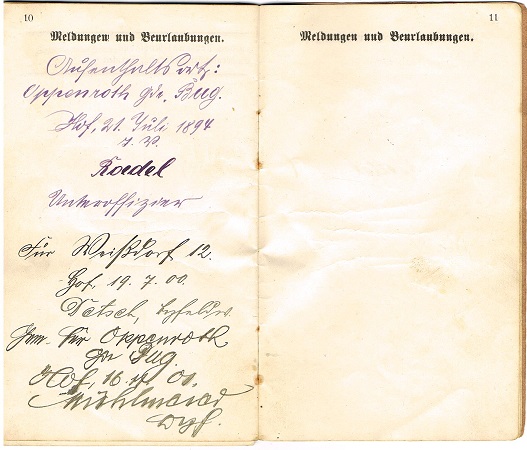 10
Meldungen und Beurlaubungen.
Aufenthaltsort:
Oppenroth Gde. Bug.
Hof, 21. Juli 1894
J. V.
Roedel
Unteroffizier
Für Weißdorf 12.
Hof, 19. 7. 00.
Gem. für Oppenroth
Gde Bug.
Hof, 16. 00.
11
Meldungen und Beurlaubungen.